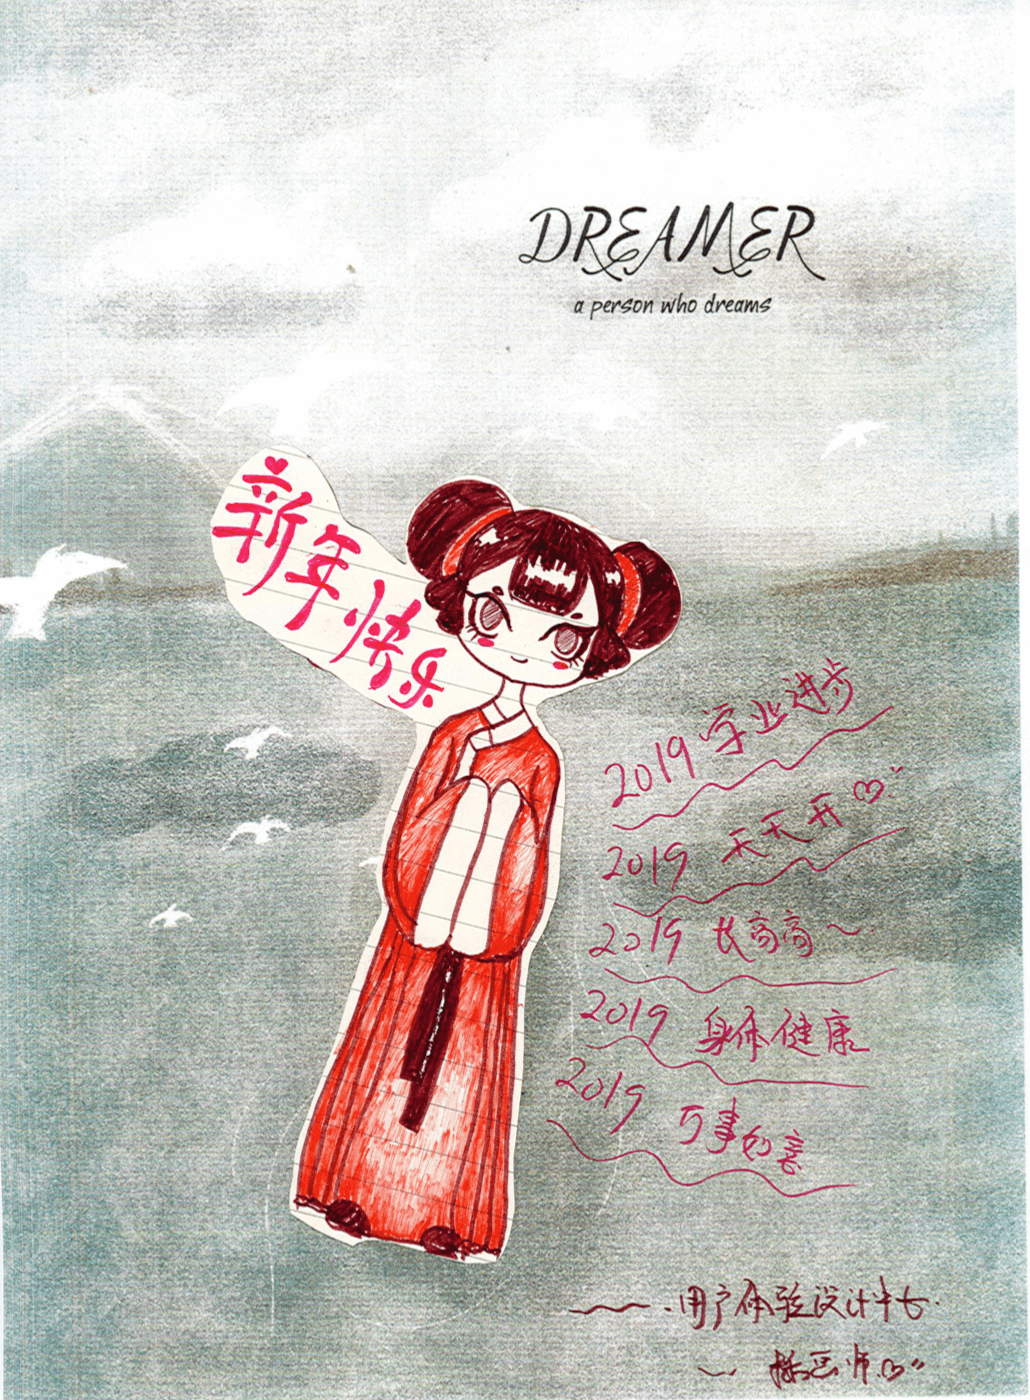 DREAMER
a person who dreams
新年快乐
2019 学业进步
2019 天天开♡
2019 长高高~
2019 身体健康
2019 万事如意
用户体验设计
插画师♡